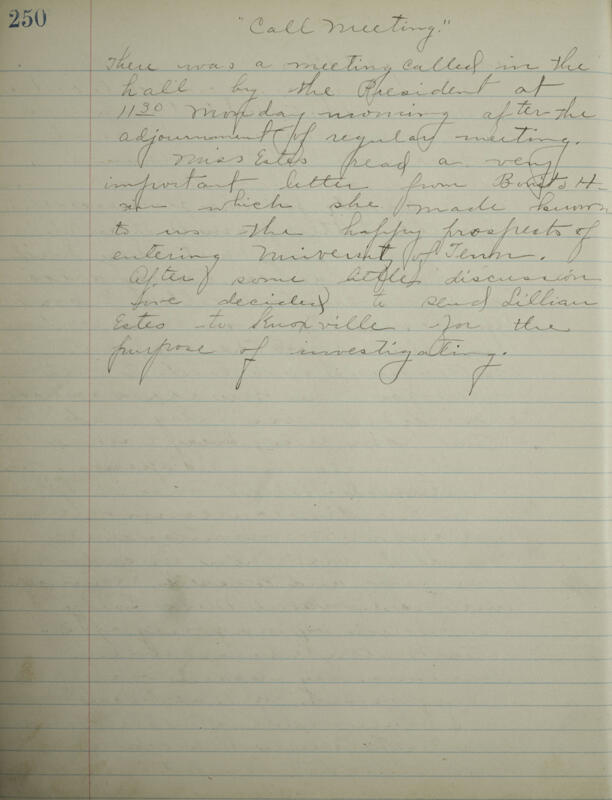 250
"Call Meeting."
There was a meeting called in the
hall by the President at
11 30 Monday morning after the
adjournment of regular meeting.
Miss Estes read a very
important letter from H-
in which she made known
to us the happy prospects of
entering University of Tenn.
After some little discussion
we decided to send Lillian
Estes to Knoxville for the
purpose of investigating.